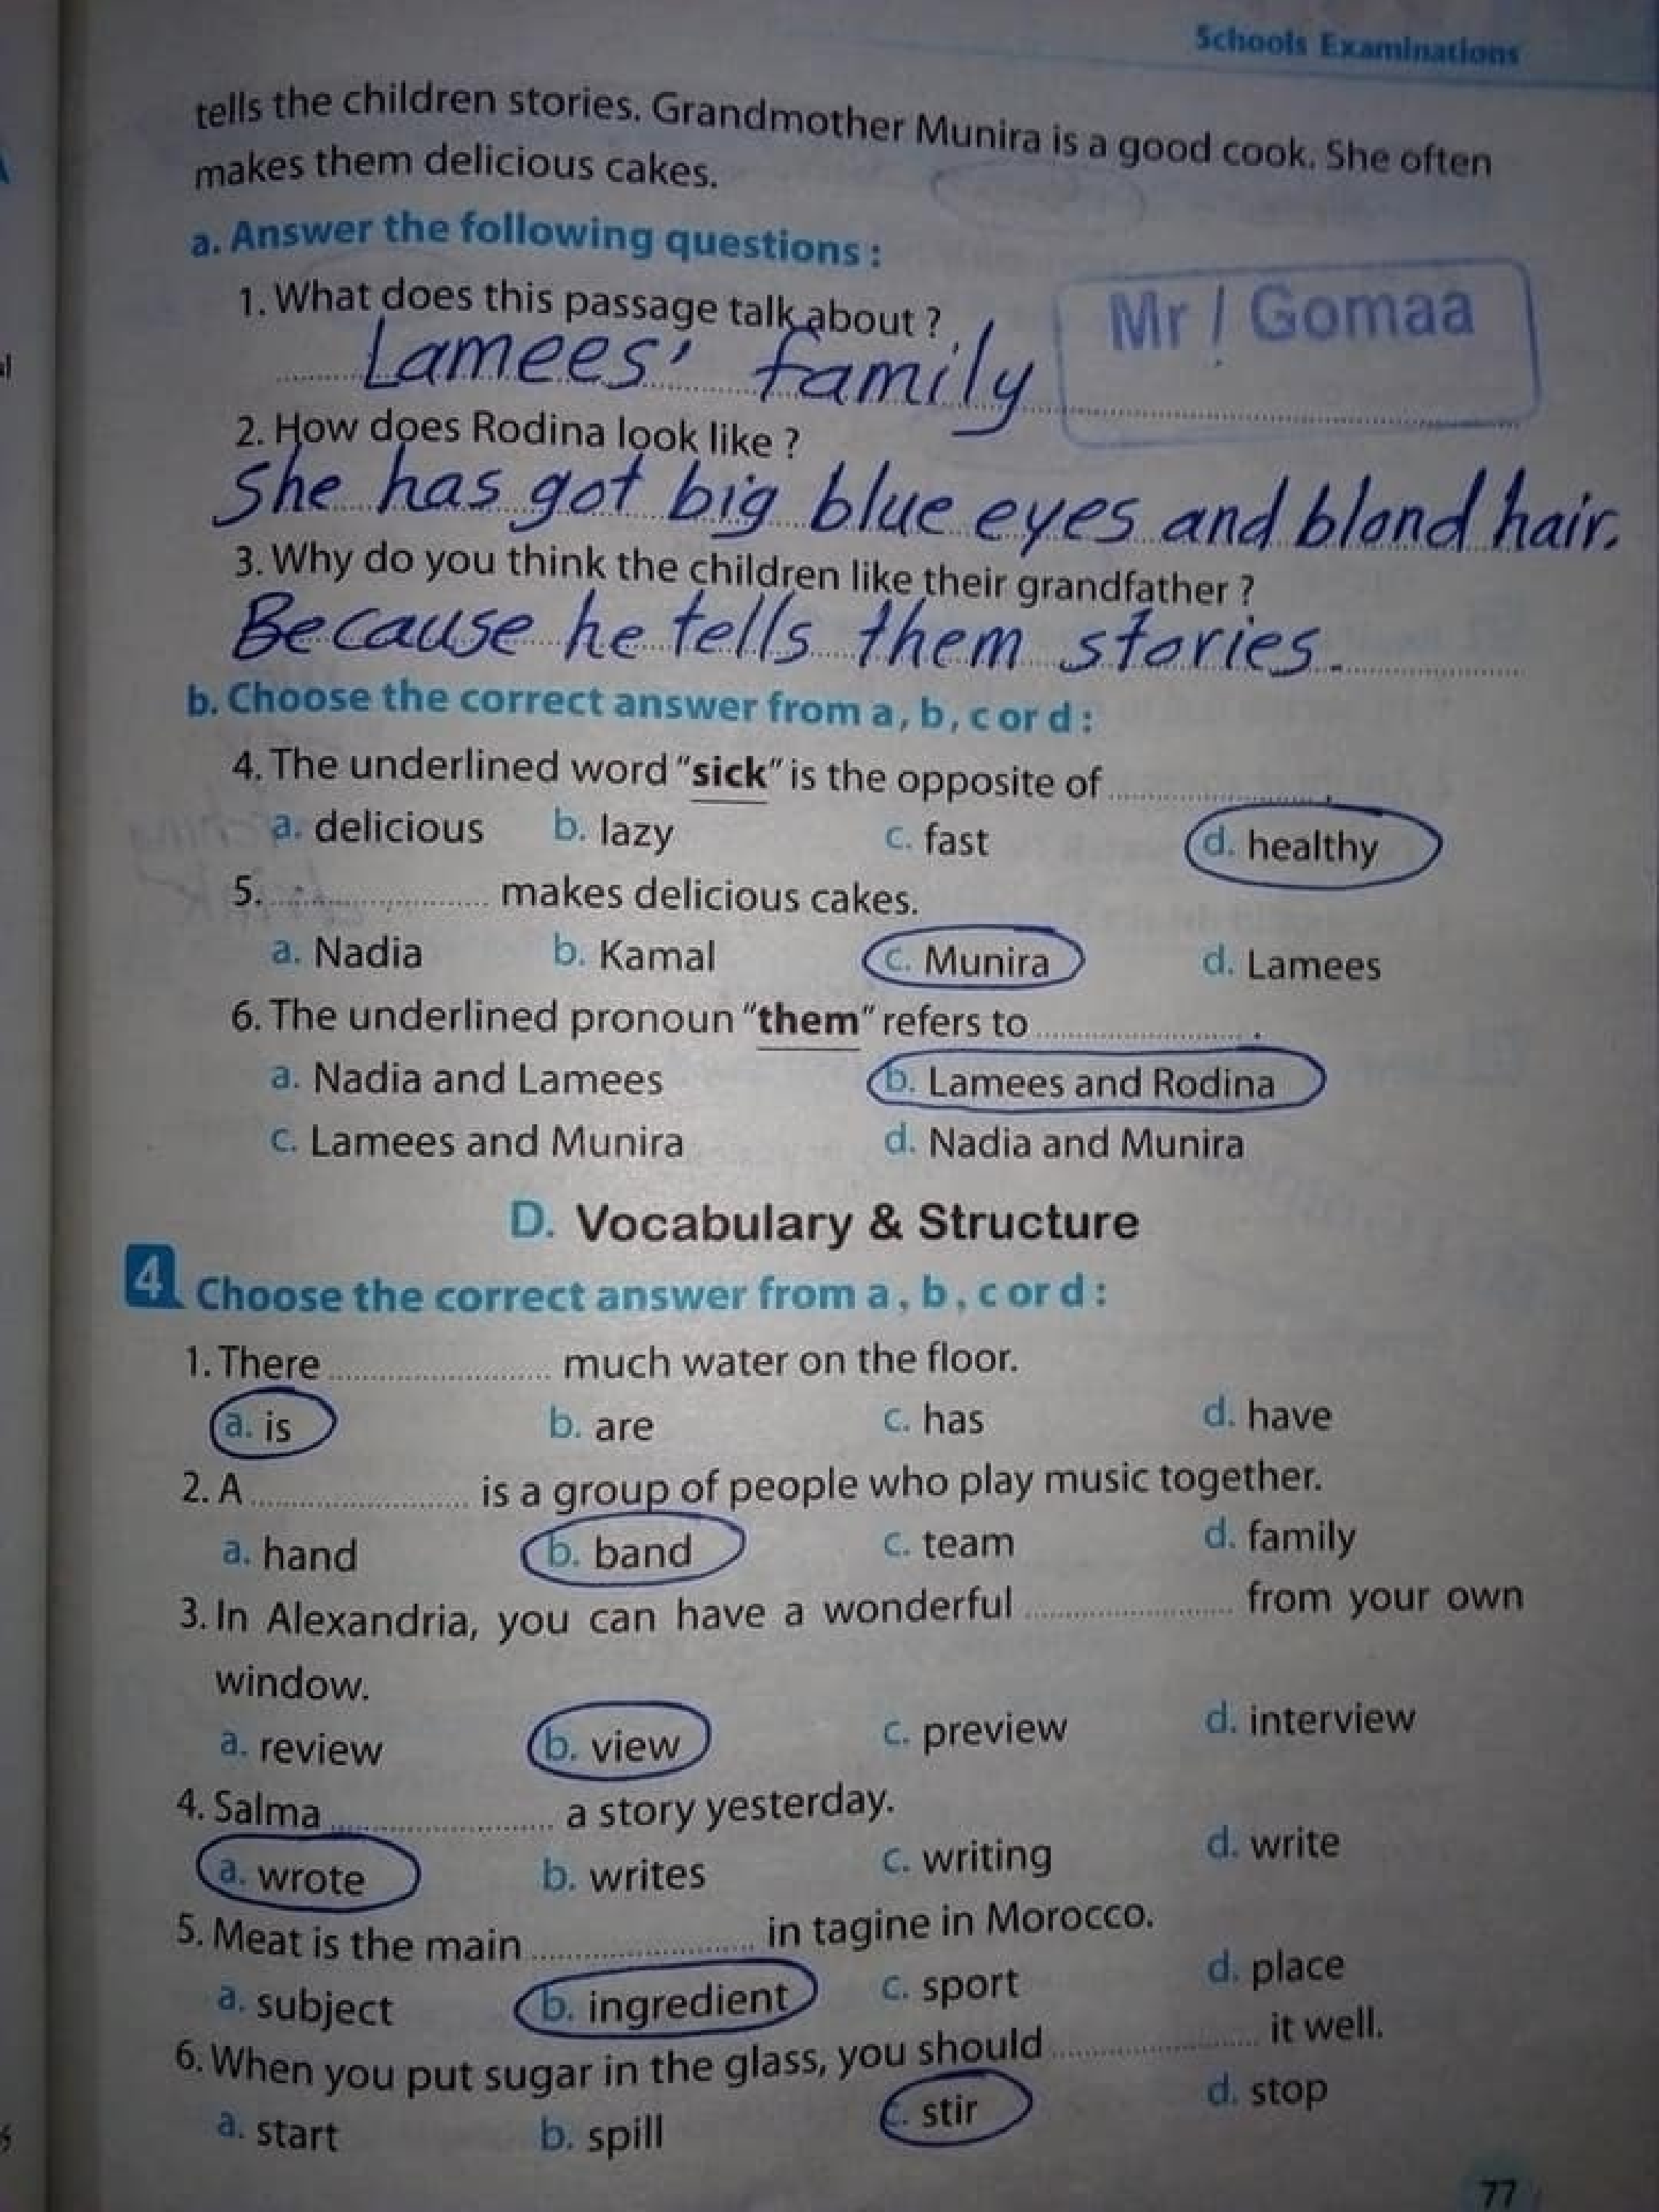 Schools Examinations
tells the children stories. Grandmother Munira is a good cook. She often
makes them delicious cakes.
a. Answer the following questions :
1. What does this passage talk about ?
Mr / Gomaa
Lamees' family
2. How does Rodina look like ?
She has got big blue eyes and blond hair.
3. Why do you think the children like their grandfather ?
Because he tells them stories.
b. Choose the correct answer from a , b , c or d :
4. The underlined word "sick" is the opposite of .................... .
a. delicious b. lazy c. fast d. healthy
5. .................... makes delicious cakes.
a. Nadia b. Kamal c. Munira d. Lamees
6. The underlined pronoun "them" refers to .................... .
a. Nadia and Lamees b. Lamees and Rodina
c. Lamees and Munira d. Nadia and Munira
D. Vocabulary & Structure
4 Choose the correct answer from a , b , c or d :
1. There .................... much water on the floor.
a. is b. are c. has d. have
2. A .................... is a group of people who play music together.
a. hand b. band c. team d. family
3. In Alexandria, you can have a wonderful .................... from your own
window.
a. review b. view c. preview d. interview
4. Salma .................... a story yesterday.
a. wrote b. writes c. writing d. write
5. Meat is the main .................... in tagine in Morocco.
a. subject b. ingredient c. sport d. place
6. When you put sugar in the glass, you should .................... it well.
a. start b. spill c. stir d. stop
77